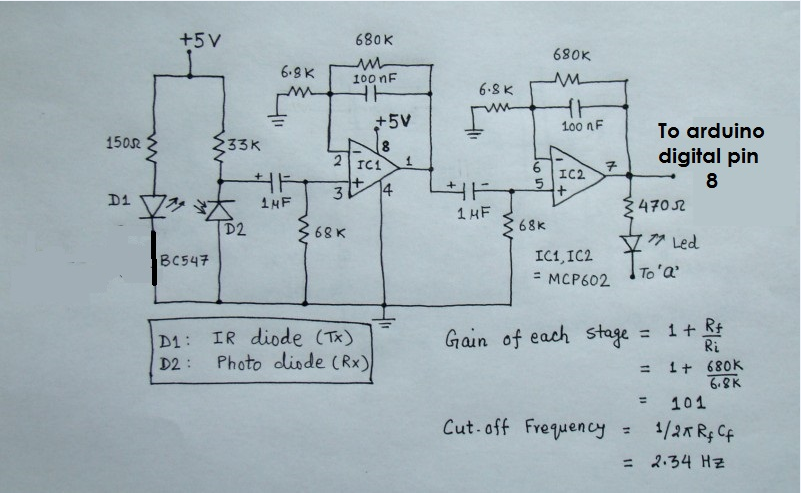 +5V
680K
6.8K
100nF
+5V
150Ω
33K
2
-
8
IC1
1
3
+
4
D1
D2
+ -
1µF
68K
BC547
680K
6.8K
100nF
6
-
7
IC2
5
+
+ -
1µF
68K
To arduino
digital pin
8
470Ω
Led
To 'a'
IC1, IC2
= MCP602
D1: IR diode (Tx)
D2: Photo diode (Rx)
Gain of each stage = 1 + Rf/Ri
= 1 + 680K/6.8K
= 101
Cut-off Frequency = 1/2πRfCf
= 2.34 Hz